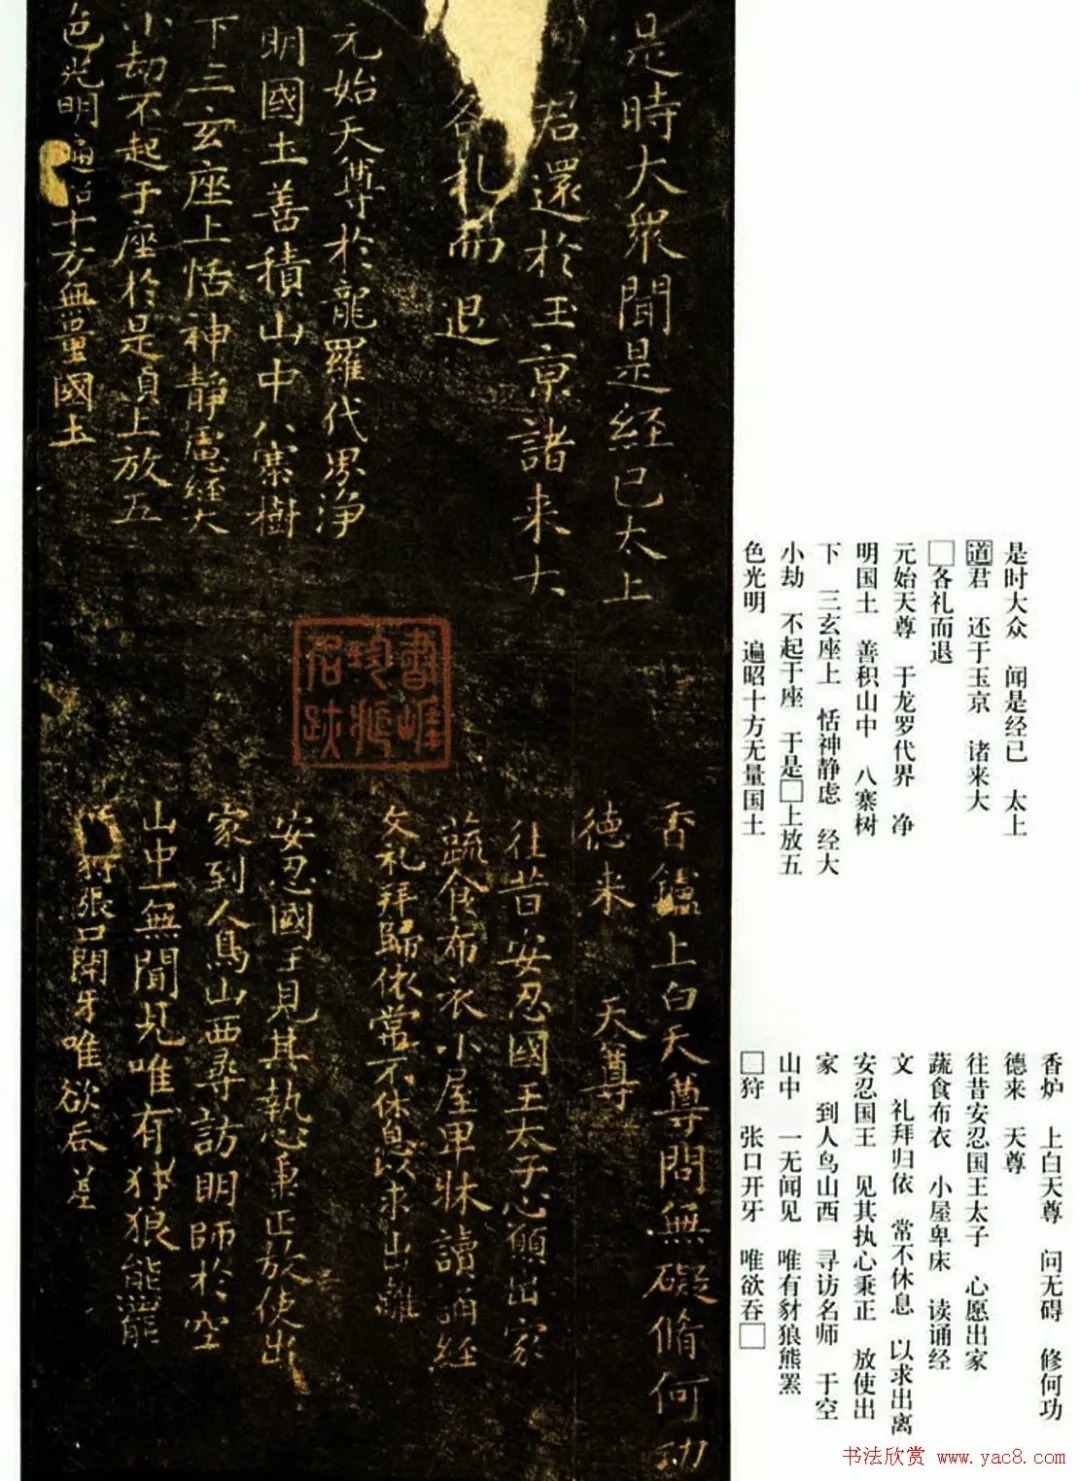 是時大衆聞是經已太上
君還於玉京諸來大
各礼而退
元始天尊於龍羅代界浄
明國土善積山中八寨樹
下三玄座上恬神靜慮經大
小劫不起于座於是上放五
色光明遍十方無量國土
香鑪上白天尊問無礙脩何功
德来 天尊
往昔安忍國王太子心願出家
蔬食布衣小屋卑牀讀誦經
文礼拜歸依常不休息以求出離
安忍國王見其執心秉正放使出
家到人鳥山西尋訪明師於空
山中一無聞見唯有犲狼熊羆
狩張口開牙唯欲吞
是时大众 闻是经已 太上
道君 还于玉京 诸来大
□各礼而退
元始天尊 于龙罗代界 净
明国土 善积山中 八寨树
下 三玄座上 恬神静虑 经大
小劫 不起于座 于是□上放五
色光明 遍昭十方无量国土
香炉 上白天尊 问无碍 修何功
德来 天尊
往昔安忍国王太子 心愿出家
蔬食布衣 小屋卑床 读诵经
文 礼拜归依 常不休息 以求出离
安忍国王 见其执心秉正 放使出
家 到人鸟山西 寻访名师 于空
山中 一无闻见 唯有豺狼熊罴
□狩 张口开牙 唯欲吞□
书法欣赏 www.yac8.com